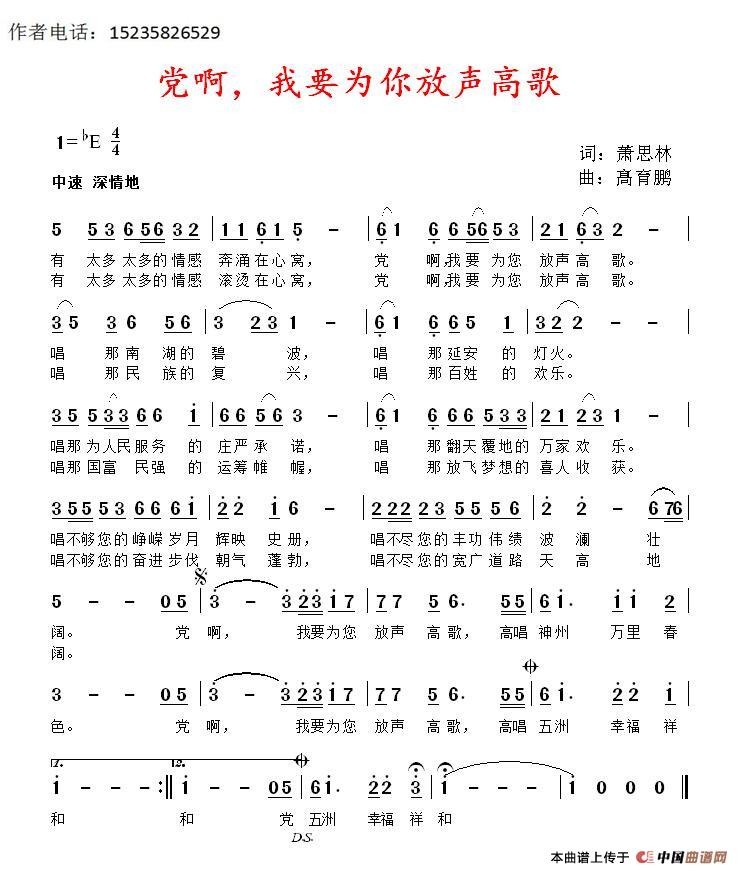 作者电话：15235826529
党啊，我要为你放声高歌
1=♭E 4/4
词：萧思林
中速 深情地
曲：高育鹏
5 5 5 3 6 5 6 3 2 | 1 1 6 1 5 - | 6 1 6 6 5 6 5 3 | 2 1 6 3 2 - |
有 太多 太多的情感 奔涌在心窝， 党 啊,我要 为您 放声高歌。
有 太多 太多的情感 滚烫在心窝， 党 啊,我要 为您 放声高歌。
3 5 5 3 6 5 6 | 3 2 3 1 - | 6 1 6 6 5 1 | 3 2 2 - - |
唱 那南 湖的 碧 波， 唱 那延安 的 灯火。
唱 那民 族的 复 兴， 唱 那百姓 的 欢乐。
3 5 5 3 3 6 6 1 | 6 6 5 6 3 - | 6 1 6 6 6 5 3 3 | 2 1 2 3 1 - |
唱那为人民服务 的 庄严承 诺， 唱 那翻天覆地的 万家欢 乐。
唱那国富 民强 的 运筹帷 幄， 唱 那放飞梦想的 喜人收 获。
3 5 5 5 3 6 6 6 1 | 2 2 1 6 - | 2 2 2 2 3 5 5 5 6 | 2 2 - 6 7 6 |
唱不够您的峥嵘岁月 辉映 史册， 唱不尽您的丰功伟绩 波 澜 壮
唱不够您的奋进步伐 朝气 蓬勃， 唱不尽您的宽广道路 天 高 地
5 - - 0 5 | 3 - 3 2 3 1 7 | 7 7 5 6. 5 5 | 6 1. 1 1 2 |
阔。 党 啊， 我要为您 放声 高歌，高唱 神州 万里 春
阔。
3 - - 0 5 | 3 - 3 2 3 1 7 | 7 7 5 6. 5 5 | 6 1. 2 2 1 |
色。 党 啊， 我要为您 放声 高歌，高唱 五洲 幸福 祥
1.
2.
1 - - - :‖ 1 - - 0 5 | 6 1. 2 2 3 | 1 - - - | 1 0 0 0 ‖
和 和 党 五洲 幸福 祥 和
D.S.
本曲谱上传于 中国曲谱网